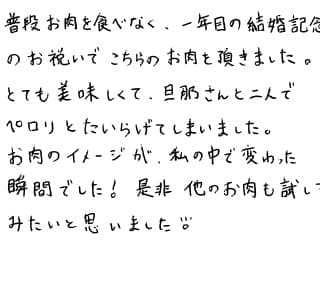 普段お肉を食べなく、一年目の結婚記念
のお祝いでこちらのお肉を頂きました。
とても美味しくて、旦那さんと二人で
ペロリとたいらげてしまいました。
お肉のイメージが、私の中で変わった
瞬間でした！是非他のお肉も試して
みたいと思いました